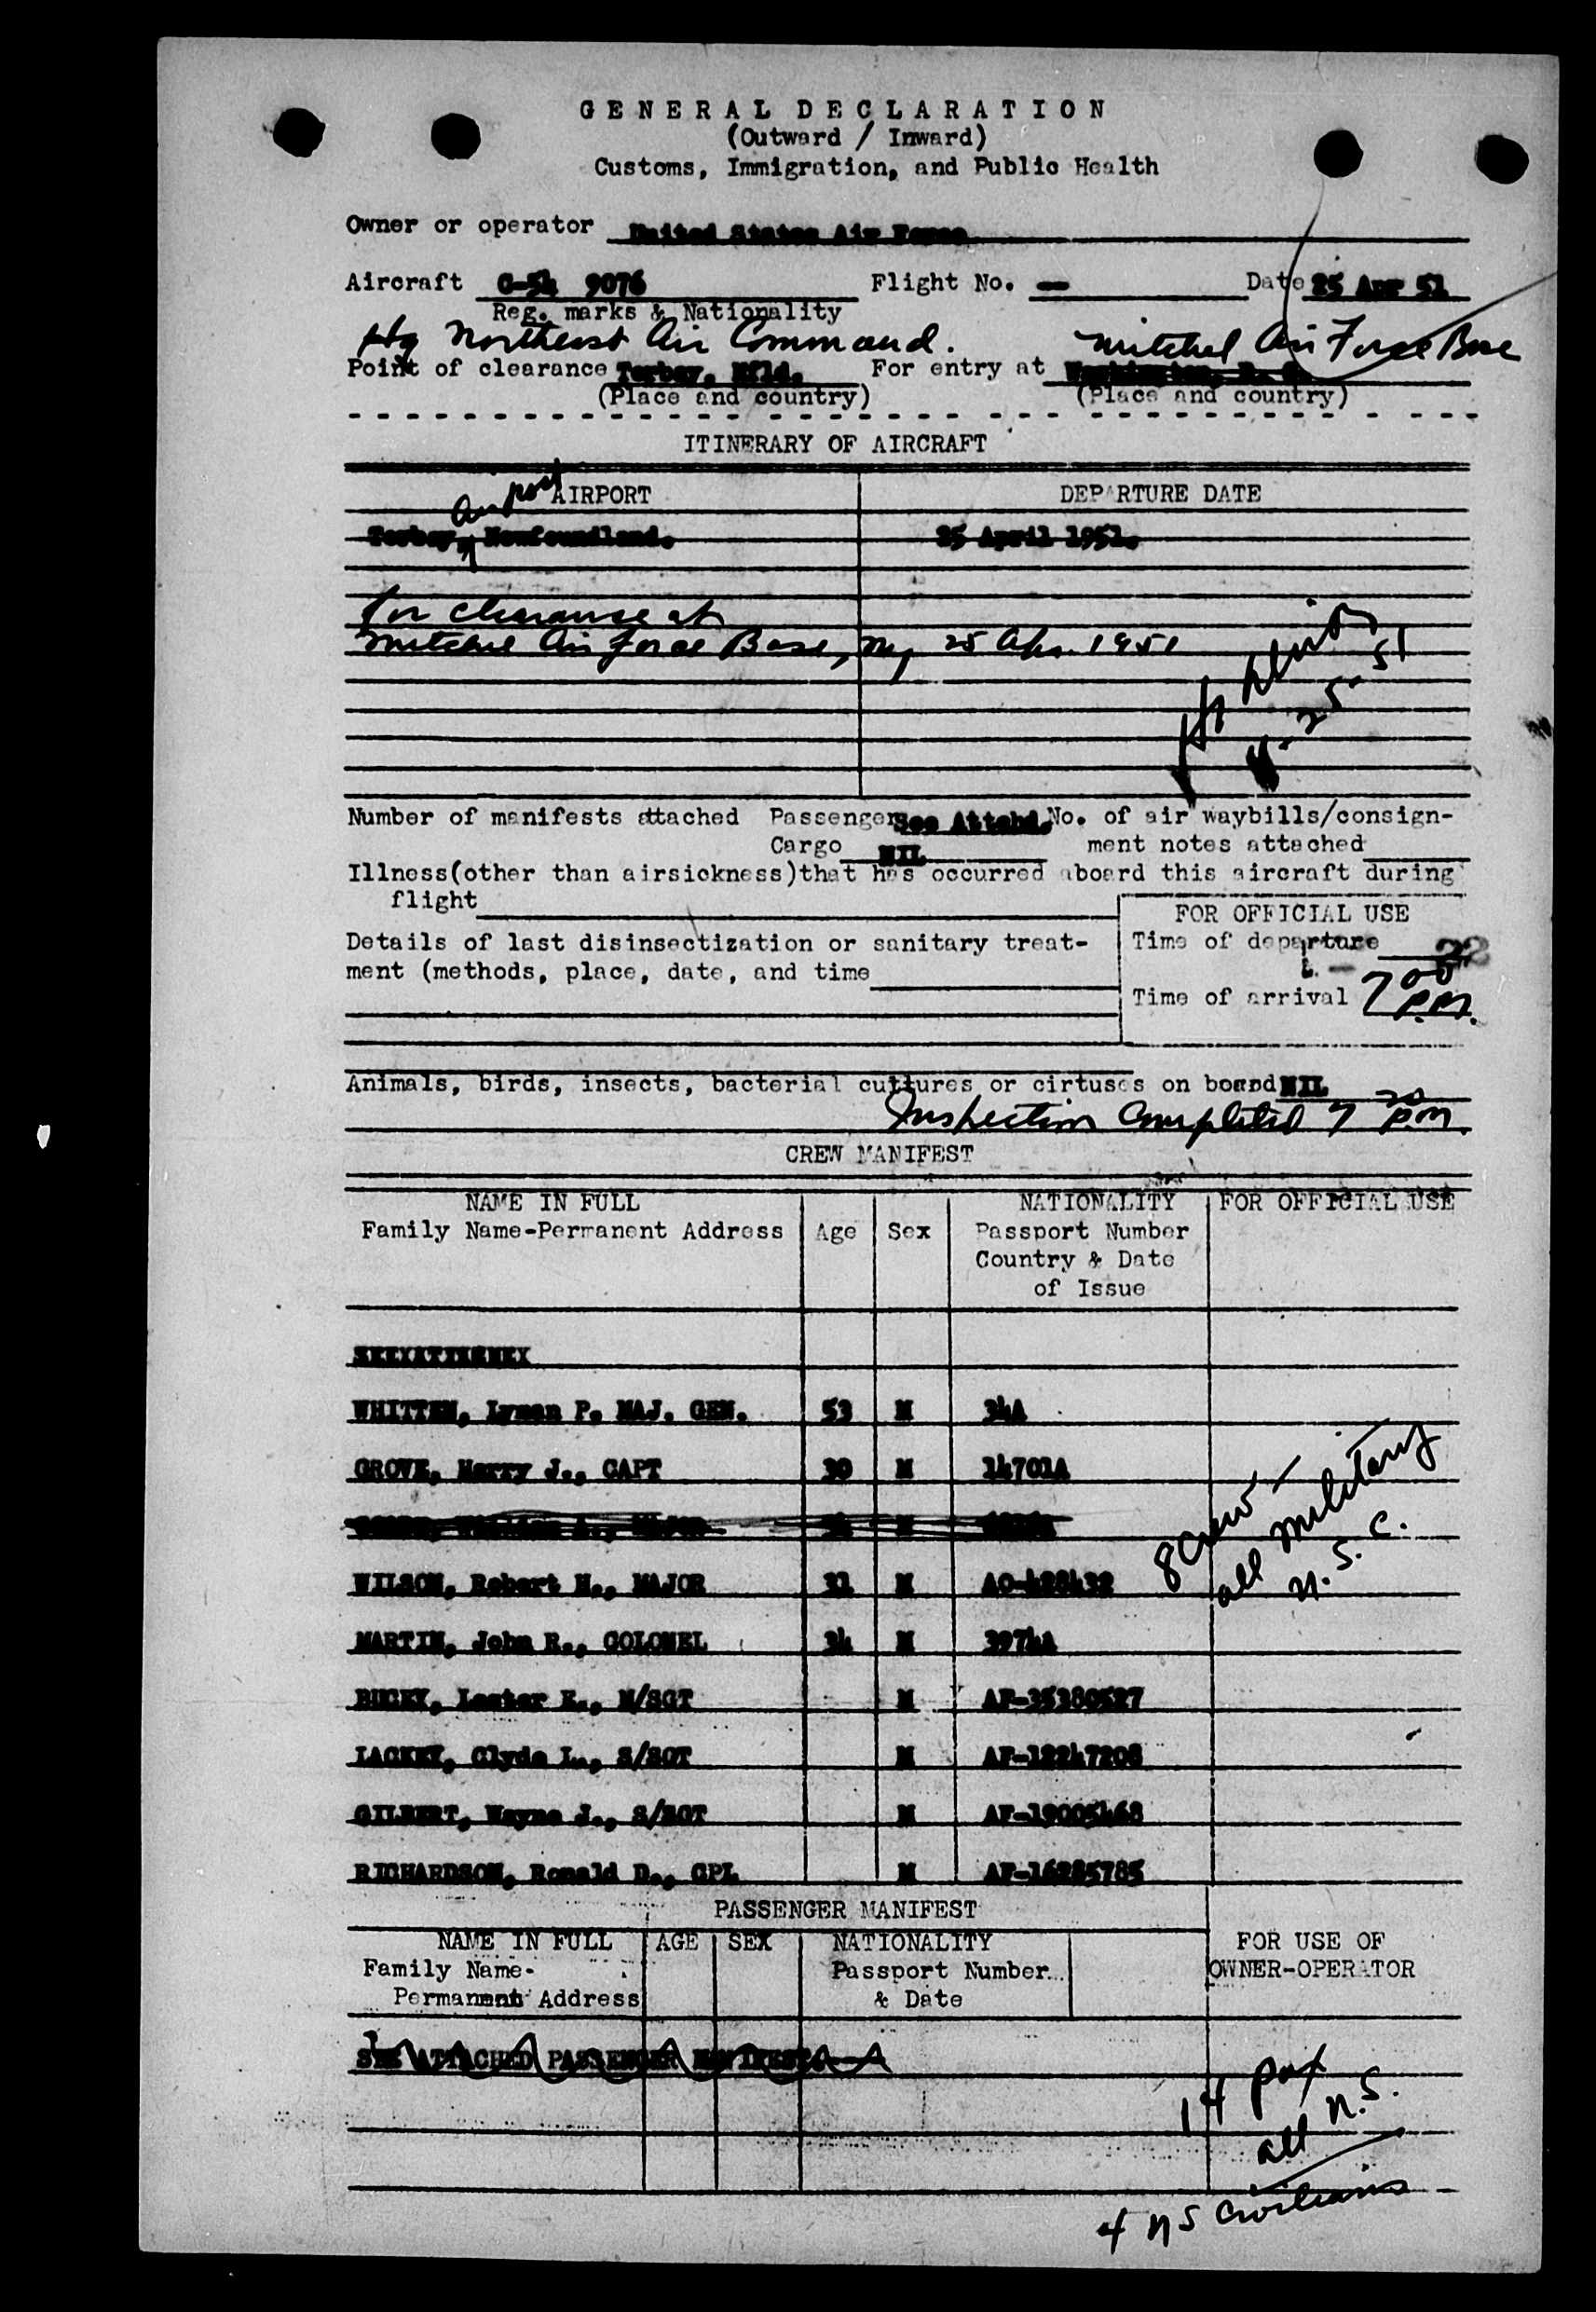 GENERAL DECLARATION
(Outward / Inward)
Customs, Immigration, and Public Health
Owner or operator United States Air Force
Aircraft C-54 9076 Flight No. — Date 25 Apr 51
Reg. marks & Nationality
Hq Northeast Air Command. Mitchel Air Force Base
Point of clearance Torbay, Nfld. For entry at Washington, D. C.
(Place and country) (Place and country)
ITINERARY OF AIRCRAFT
AIRPORT DEPARTURE DATE
Airport
Torbay, Newfoundland. 25 April 1951.
for clearance at
Mitchel Air Force Base, NY 25 Apr. 1951
4-25-51
Number of manifests attached Passengers See Attchd. No. of air waybills/consign-
Cargo NIL ment notes attached
Illness(other than airsickness)that has occurred aboard this aircraft during
flight
FOR OFFICIAL USE
Details of last disinsectization or sanitary treat- Time of departure
ment (methods, place, date, and time
Time of arrival 7 00 P.M.
Animals, birds, insects, bacterial cultures or cirtuses on board NIL
Inspection Completed 7 20 P.M.
CREW MANIFEST
NAME IN FULL NATIONALITY FOR OFFICIAL USE
Family Name-Permanent Address Age Sex Passport Number
Country & Date
of Issue
WHITTEN, Lyman P. MAJ. GEN. 53 M 34A
GROVE, Harry J., CAPT 30 M 14701A
WILSON, Robert H., MAJOR 31 M AO-428432
MARTIN, John R., COLONEL 34 M 3974A
BUCKY, Lester E., M/SGT M AF-35380527
LACKEY, Clyde L., S/SGT M AF-18247208
GILBERT, Wayne J., S/SGT M AF-19005468
RICHARDSON, Ronald D., CPL M AF-16285785
8 crew
all military
N.S.C.
PASSENGER MANIFEST
NAME IN FULL AGE SEX NATIONALITY FOR USE OF
Family Name- Passport Number OWNER-OPERATOR
Permanent Address & Date
SEE ATTACHED PASSENGER MANIFEST
14 pax
all N.S.
4 NS Civilians